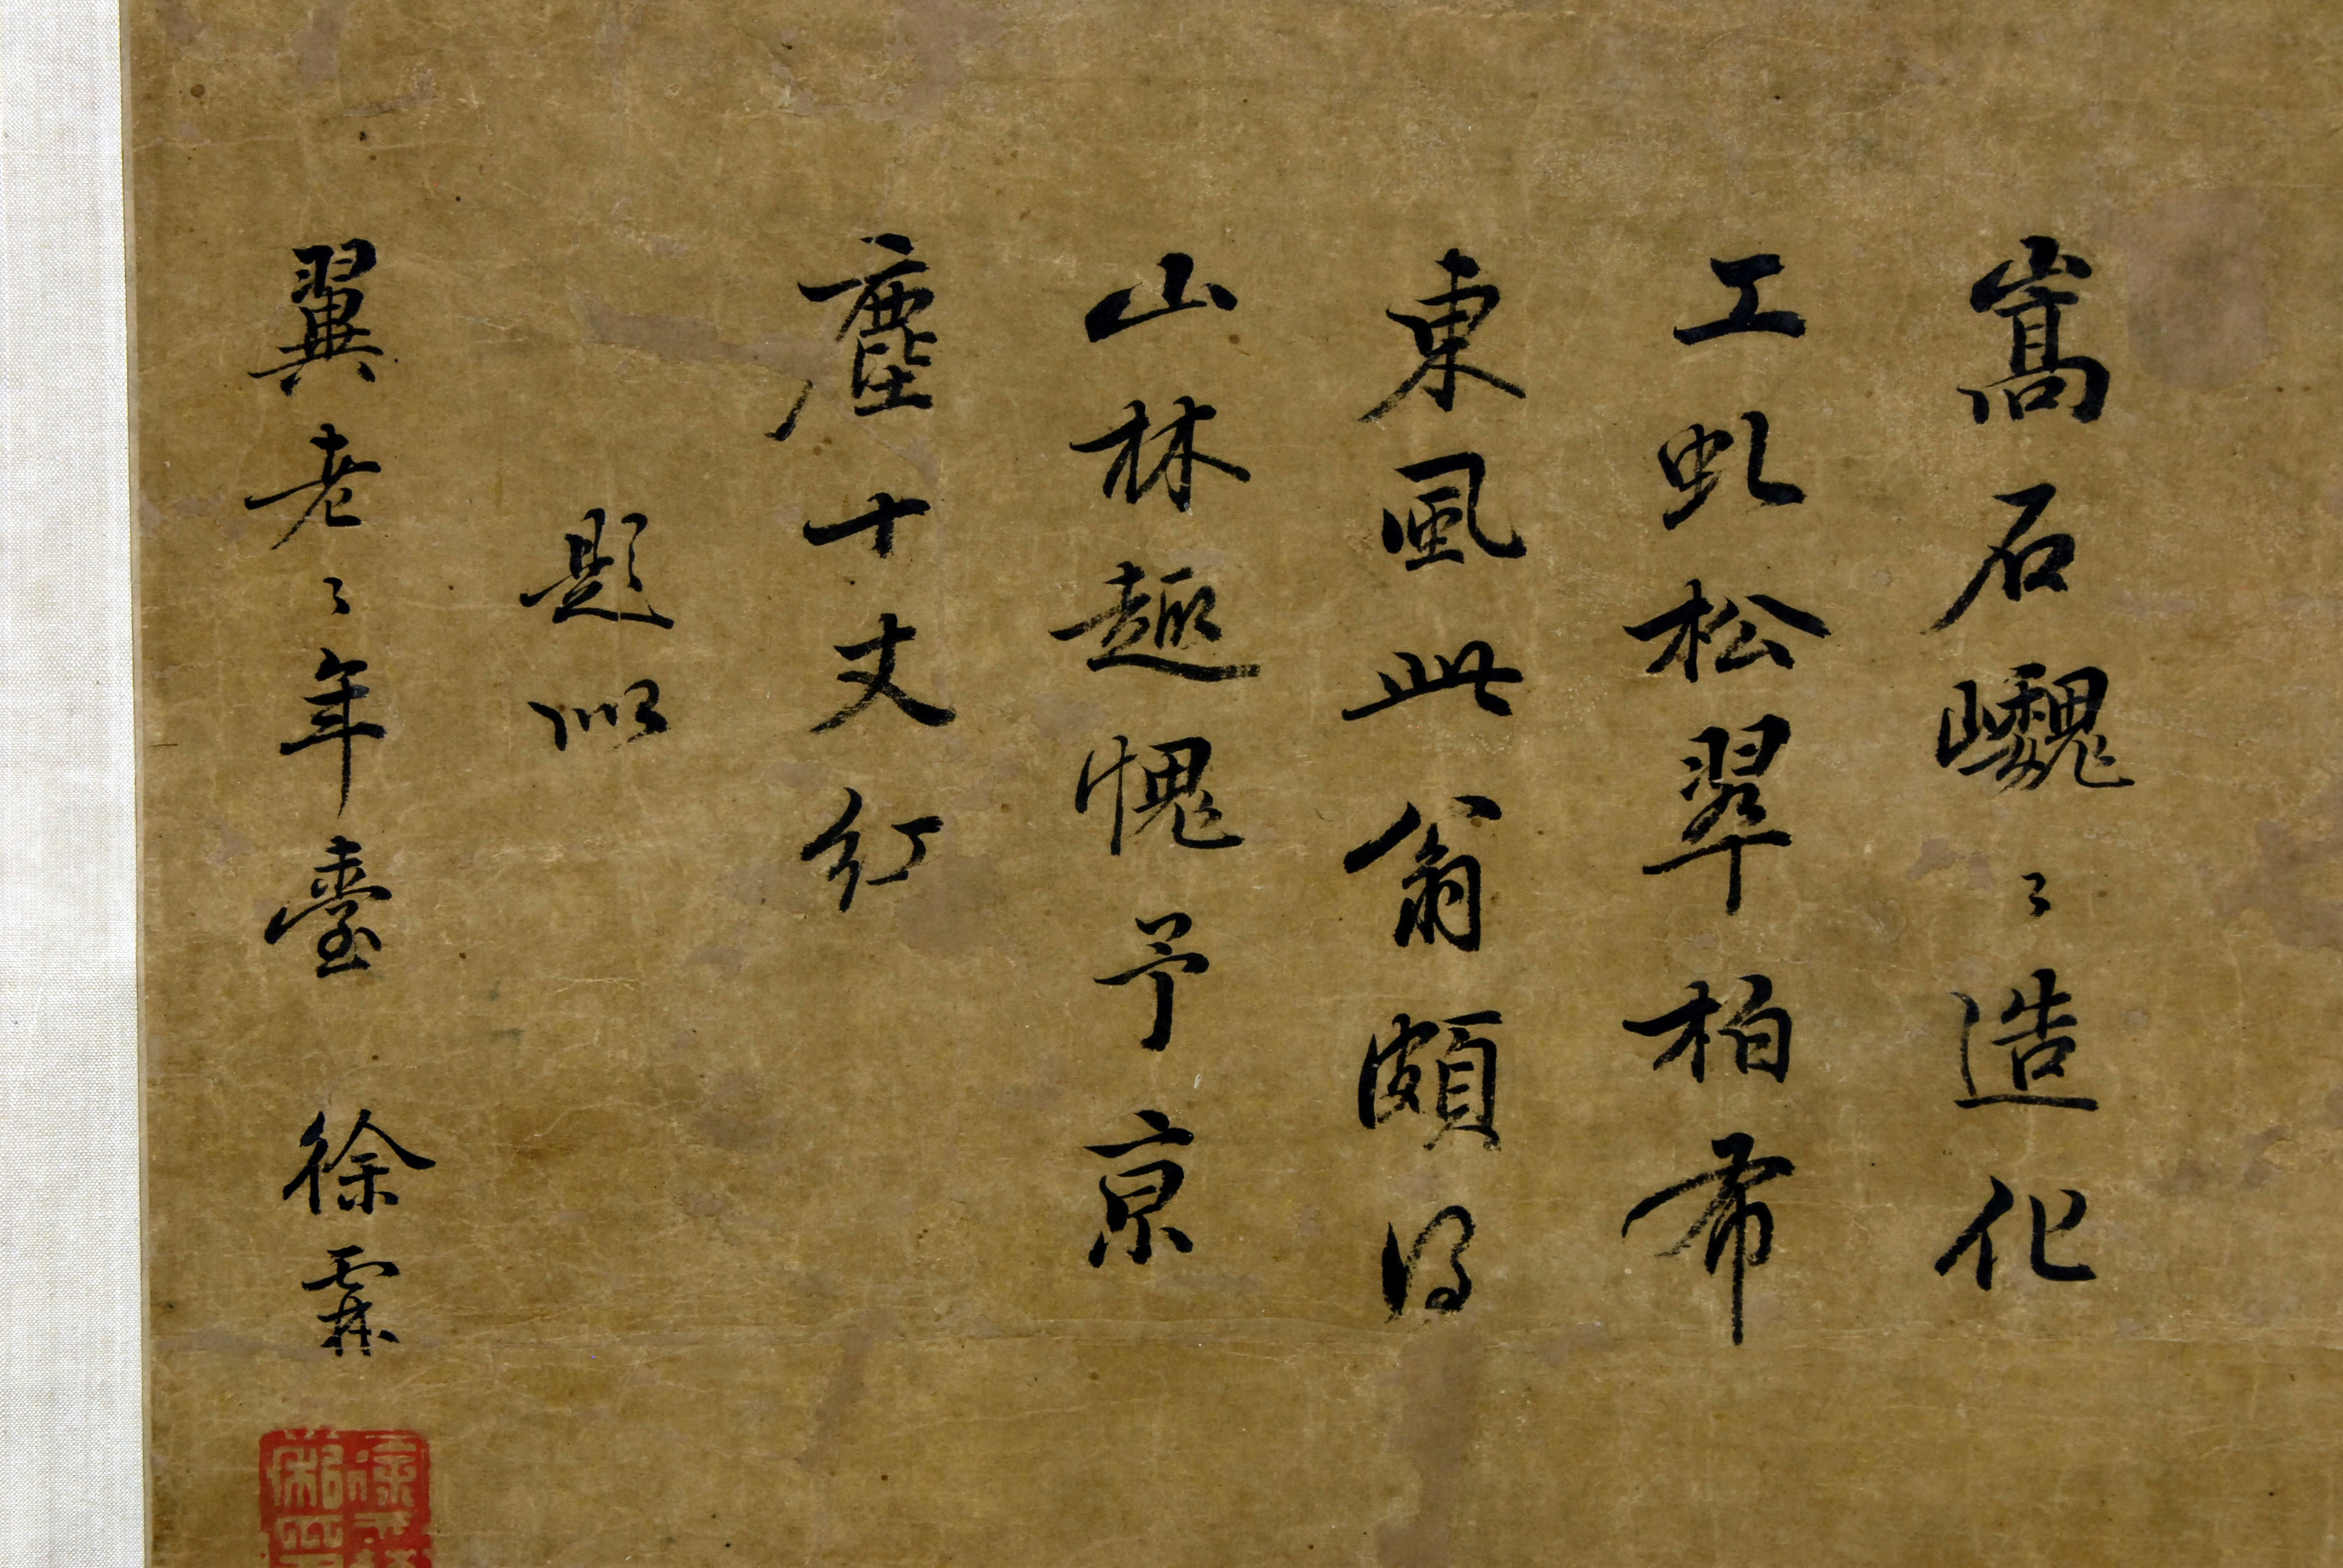 嵩石巍〻造化
工虬松翠柏希
東風此翁頗得
山林趣愧予京
塵十丈紅
題似
翼老〻年臺 徐霖